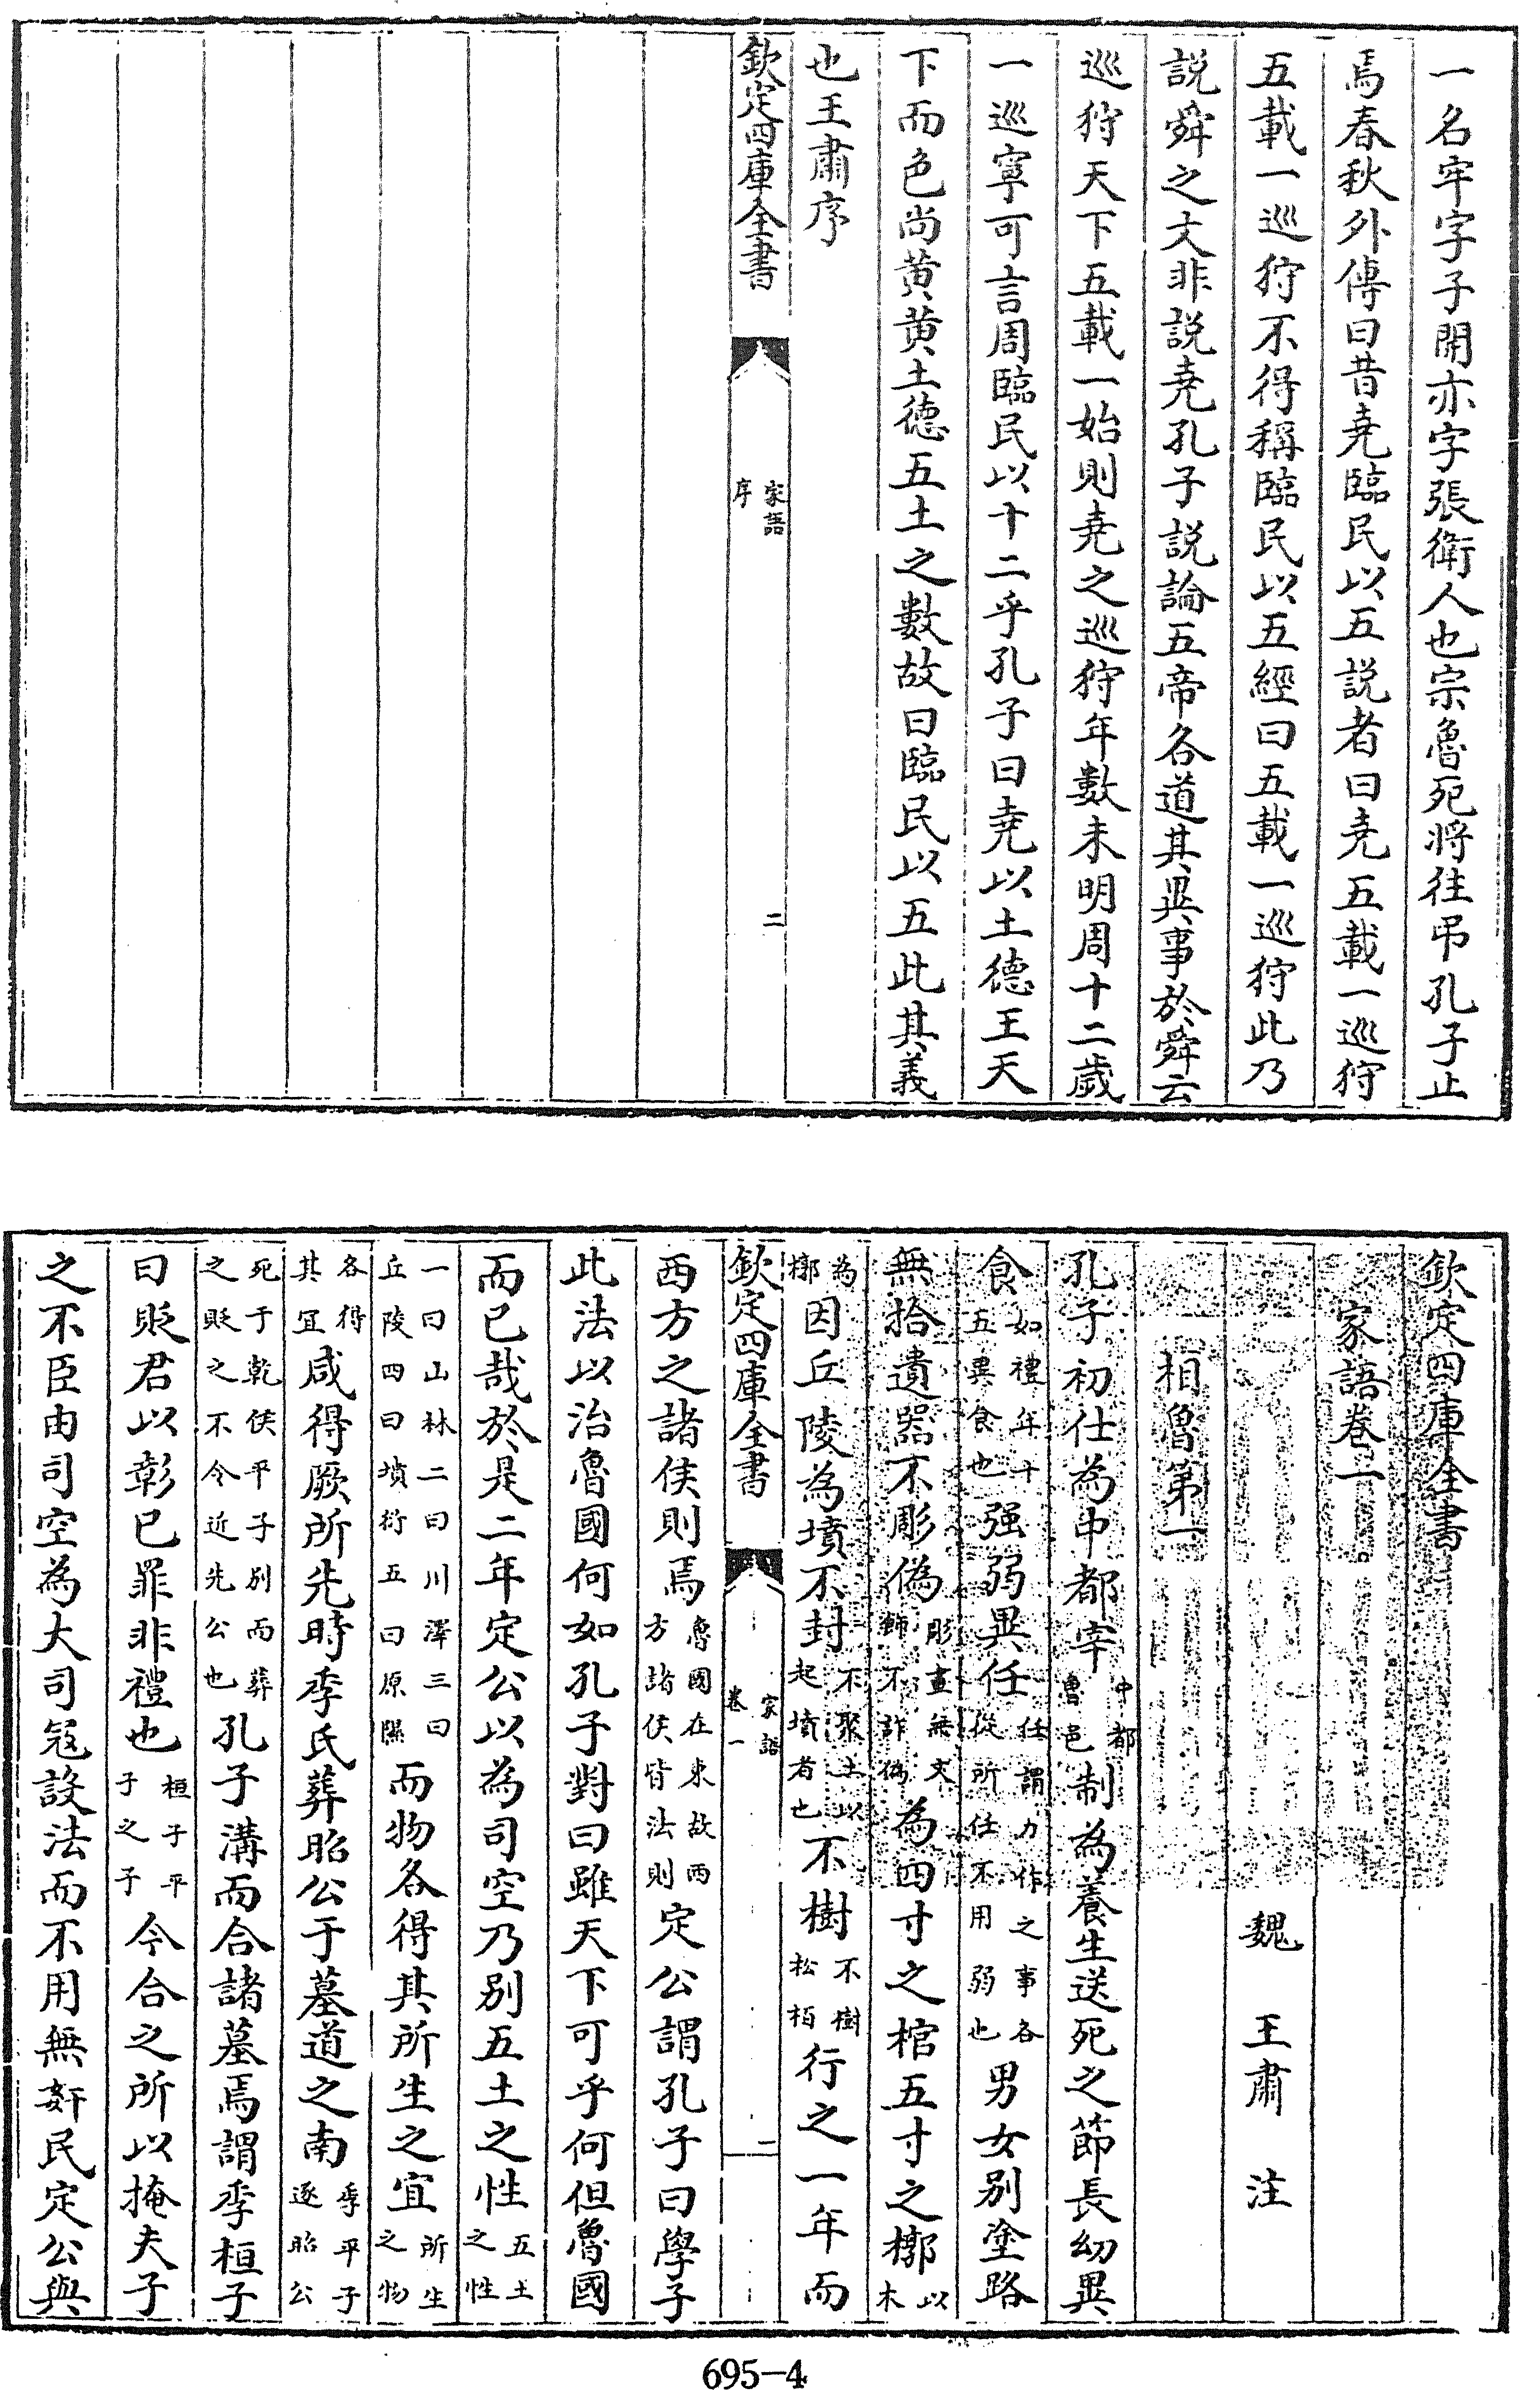 一名牢字子開亦字張衛人也宗魯死將往弔孔子止
焉春秋外傳曰昔堯臨民以五説者曰堯五載一巡狩
五載一巡狩不得稱臨民以五經曰五載一巡狩此乃
説舜之文非説堯孔子説論五帝各道其異事於舜云
巡狩天下五載一始則堯之巡狩年數未明周十二歲
一巡寧可言周臨民以十二乎孔子曰堯以土德王天
下而色尚黄黄土德五土之數故曰臨民以五此其義
也王肅序
欽定四庫全書
家語
序
二
欽定四庫全書
家語卷一
魏 王肅 注
相魯第一
孔子初仕為中都宰中都魯邑制為養生送死之節長幼異
食如禮年十五異食也强弱異任任謂力作之事各從所任不用弱也男女别塗路
無拾遺器不彫偽彫畫無文飾不詐偽為四寸之棺五寸之槨以木
為槨因丘陵為墳不封不聚土以起墳者也不樹不樹松栢行之一年而
欽定四庫全書
家語
卷一
二
西方之諸侯則焉魯國在東故西方諸侯皆法則定公謂孔子曰學子
此法以治魯國何如孔子對曰雖天下可乎何但魯國
而已哉於是二年定公以為司空乃别五土之性五土之性
一曰山林二曰川澤三曰丘陵四曰墳衍五曰原隰而物各得其所生之宜所生之物
各得其宜咸得厥所先時季氏葬昭公于墓道之南季平子逐昭公
死于乾侯平子别而葬之貶之不令近先公也孔子溝而合諸墓焉謂季桓子
曰貶君以彰已罪非禮也桓子平子之子今合之所以掩夫子
之不臣由司空為大司寇設法而不用無奸民定公與
695-4